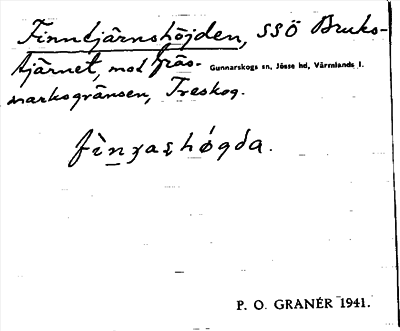 Finntjärnshöjden, SSÖ Bruks-
tjärnet, mot Gräs-
Gunnarskogs sn, Jösse hd, Värmlands l.
marksgränsen, Treskog.
høgda.
P. O. GRANÉR 1941.